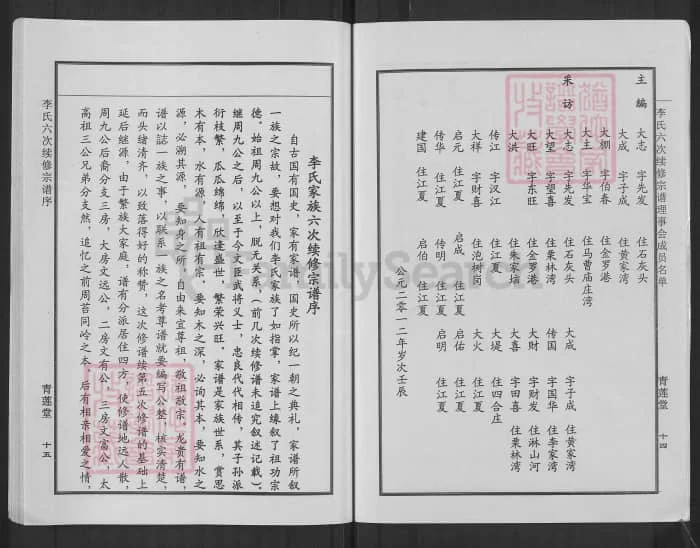 李氏六次续修宗谱理事会成员名单
青莲堂
十四
主编
大志 字先发 住石灰头
大成 字子成 住黄家湾
大棚 字伯春 住金罗港
大主 字华宝 住马曹庙庄湾
采访
大志 字先发 住石灰头 大成 字子成 住黄家湾
大望 字望喜 住栗林湾 传国 字国华 住李家湾
大旺 字东旺 住金罗港 大财 字财发 住淋山河
大洪 住朱家塆 大喜 字田喜 住栗林湾
传江 字汉江 住江夏 大堤 住四合庄
大祥 字财喜 住泡树岗 大火 住江夏
启元 住江夏 启成 住江夏 启佑 住江夏
传华 住江夏 传明 住江夏 启明 住江夏
建国 住江夏 启伯 住江夏
公元二零一二年岁次壬辰
李氏家族六次续修宗谱序
自古国有国史，家有家谱。国史所以纪一朝之典礼，家谱所叙
一族之宗故，要想对我们李氏家族了如指掌，家谱上缘叙了祖功宗
德。始祖周九公以上，脱无关系，（前几次续修谱未追究叙述记载）。
继周九公之后，以至于今文臣武将义士，忠良代代相传，其子孙派
衍枝繁，瓜瓜绵绵，欣逢盛世，繁荣兴旺。家谱是家族世系，赏思
木有本，水有源，人有祖有宗，要知木之深，必询其本，要知水之
源，必溯其源，要知身之所自由来宜尊祖，敬祖敬宗，龙贵有谱，
谱以誌一族之事，以联系一族之名考尊谱就要编写公整，核实清楚，
而头绪清齐，以致落得好的称赞，这次修谱续第五次修谱的基础上
延后继源，由于繁族大家庭，谱有分派居住四方，使修谱地远人散，
周九公后裔分支三房，大房文远公，二房文有公，三房文富公，太
高祖三公兄弟分支然，追忆之前周苔同岭之本，后有相亲相爱之情，
李氏六次续修宗谱序
青莲堂
十五
FamilySearch